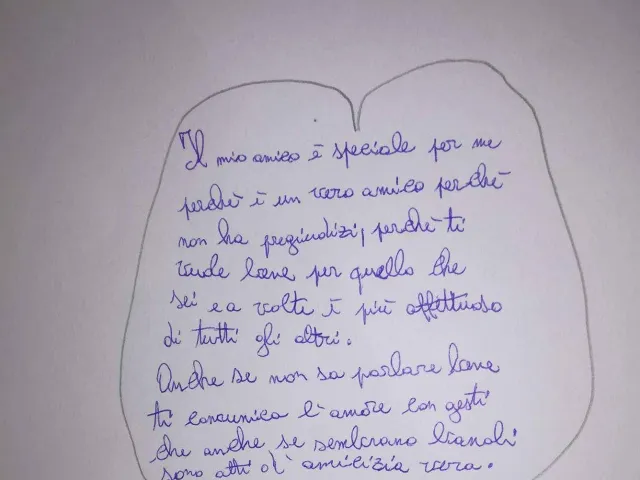 Il mio amico è speciale per me
perchè è un vero amico perchè
non ha pregiudizi, perchè ti
vuole bene per quello che
sei e a volte è più affettuoso
di tutti gli altri.
Anche se non sa parlare bene
ti comunica l'amore con gesti
che anche se sembrano banali
sono atti di amicizia vera.